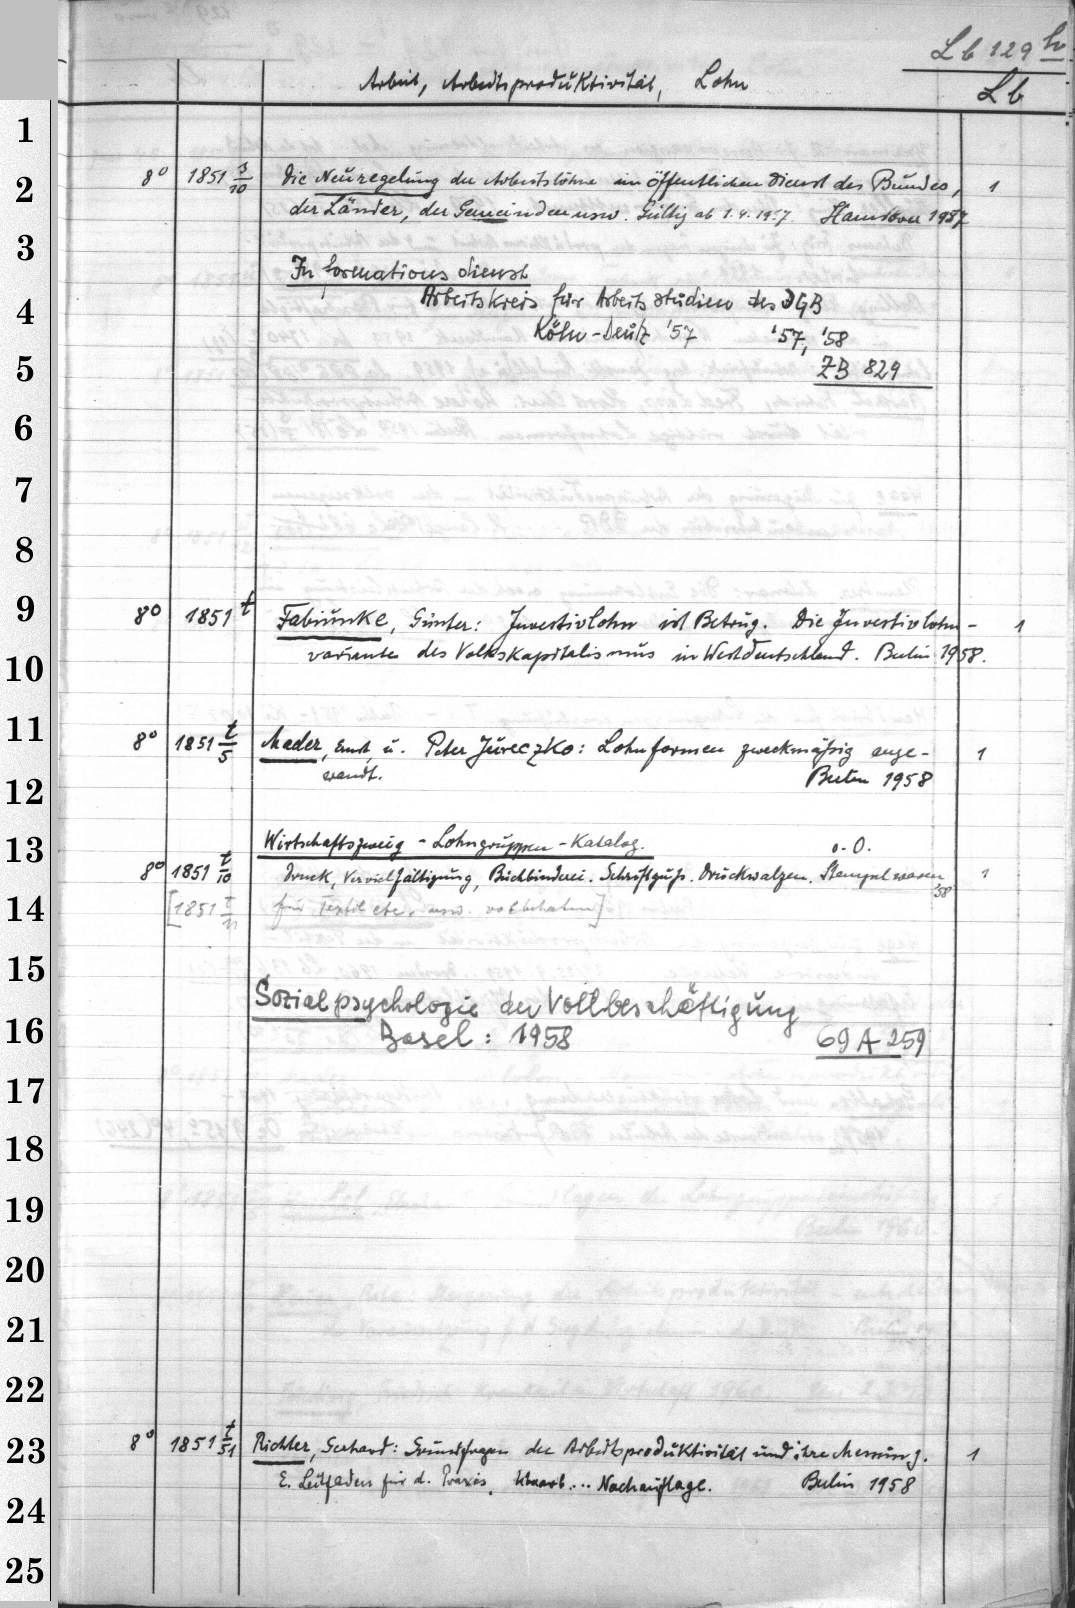 Lb 129 hv
Arbeit, Arbeitsproduktivität, Lohn
Lb
1
2
8° 1851 s/10 Die Neuregelung der Arbeitslöhne im öffentlichen Dienst des Bundes, 1
der Länder, der Gemeinden usw. Gültig ab 1.4.1957. Hannover 1957
3
Informationsdienst
4
Arbeitskreis für Arbeitsstudien des DGB
Köln-Deutz '57 '57, '58
5
ZB 829
6
7
8
9
8° 1851 t Fabiunke, Günter: Investivlohn ist Betrug. Die Investivlohn- 1
10
variante des Volkskapitalismus in Westdeutschland. Berlin 1958.
11
8° 1851 t/5 Mader, Ernst, u. Peter Jureczko: Lohnformen zweckmäßig ange- 1
wandt. Berlin 1958
12
13
Wirtschaftszweig-Lohngruppen-Katalog. o. O.
8° 1851 t/10 Druck, Vervielfältigung, Buchbinderei. Schriftguß. Druckwalzen. Stempelwaren '58 1
14
[1851 t/11 für Textil etc. usw. vorbehalten]
15
Sozialpsychologie der Vollbeschäftigung
16
Basel: 1958 69 A 259
17
18
19
20
21
22
23
8° 1851 t/51 Richter, Gerhard: Grundfragen der Arbeitsproduktivität und ihre Messung. 1
E. Leitfaden für d. Praxis. ... Nachauflage. Berlin 1958
24
25